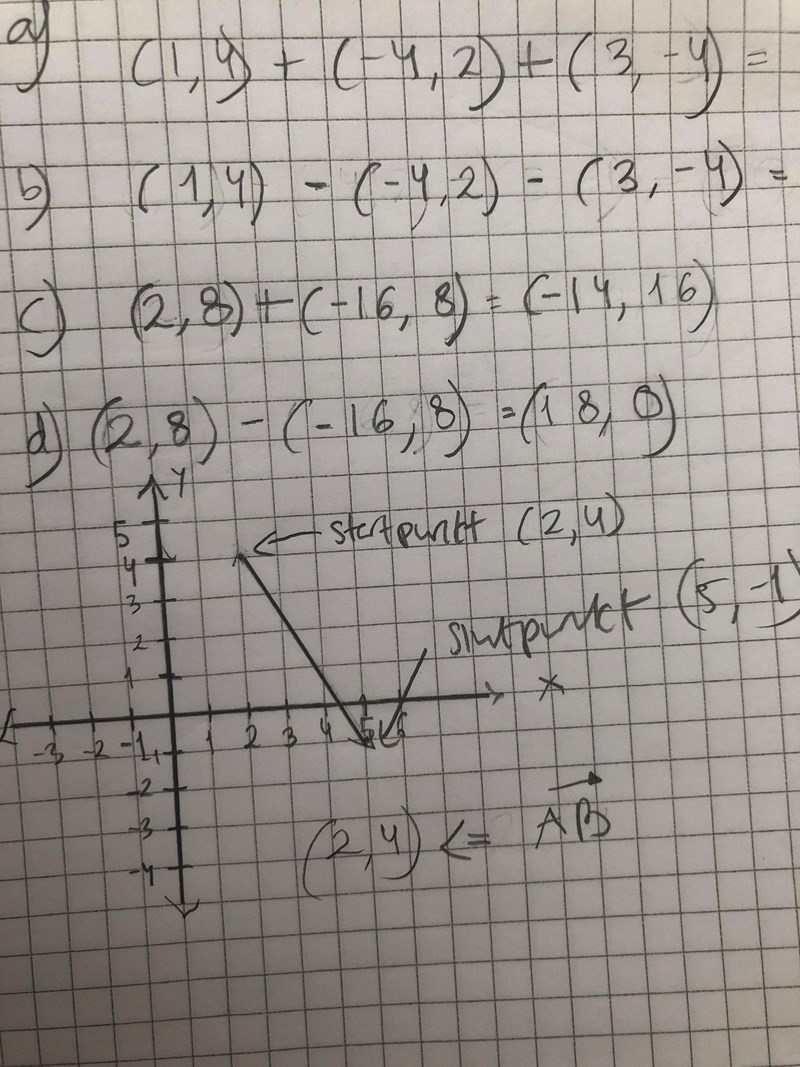 a) (1,4) + (-4,2) + (3,-4) =
b) (1,4) - (-4,2) - (3,-4) =
c) (2,8) + (-16,8) = (-14,16)
d) (2,8) - (-16,8) = (18,0)
Y
5
startpunkt (2,4)
4
3
slutpunkt (5,-1)
2
1
X
-3 -2 -1 1 2 3 4 5 6
-1
-2
-3
-4
(2,4) <= AB